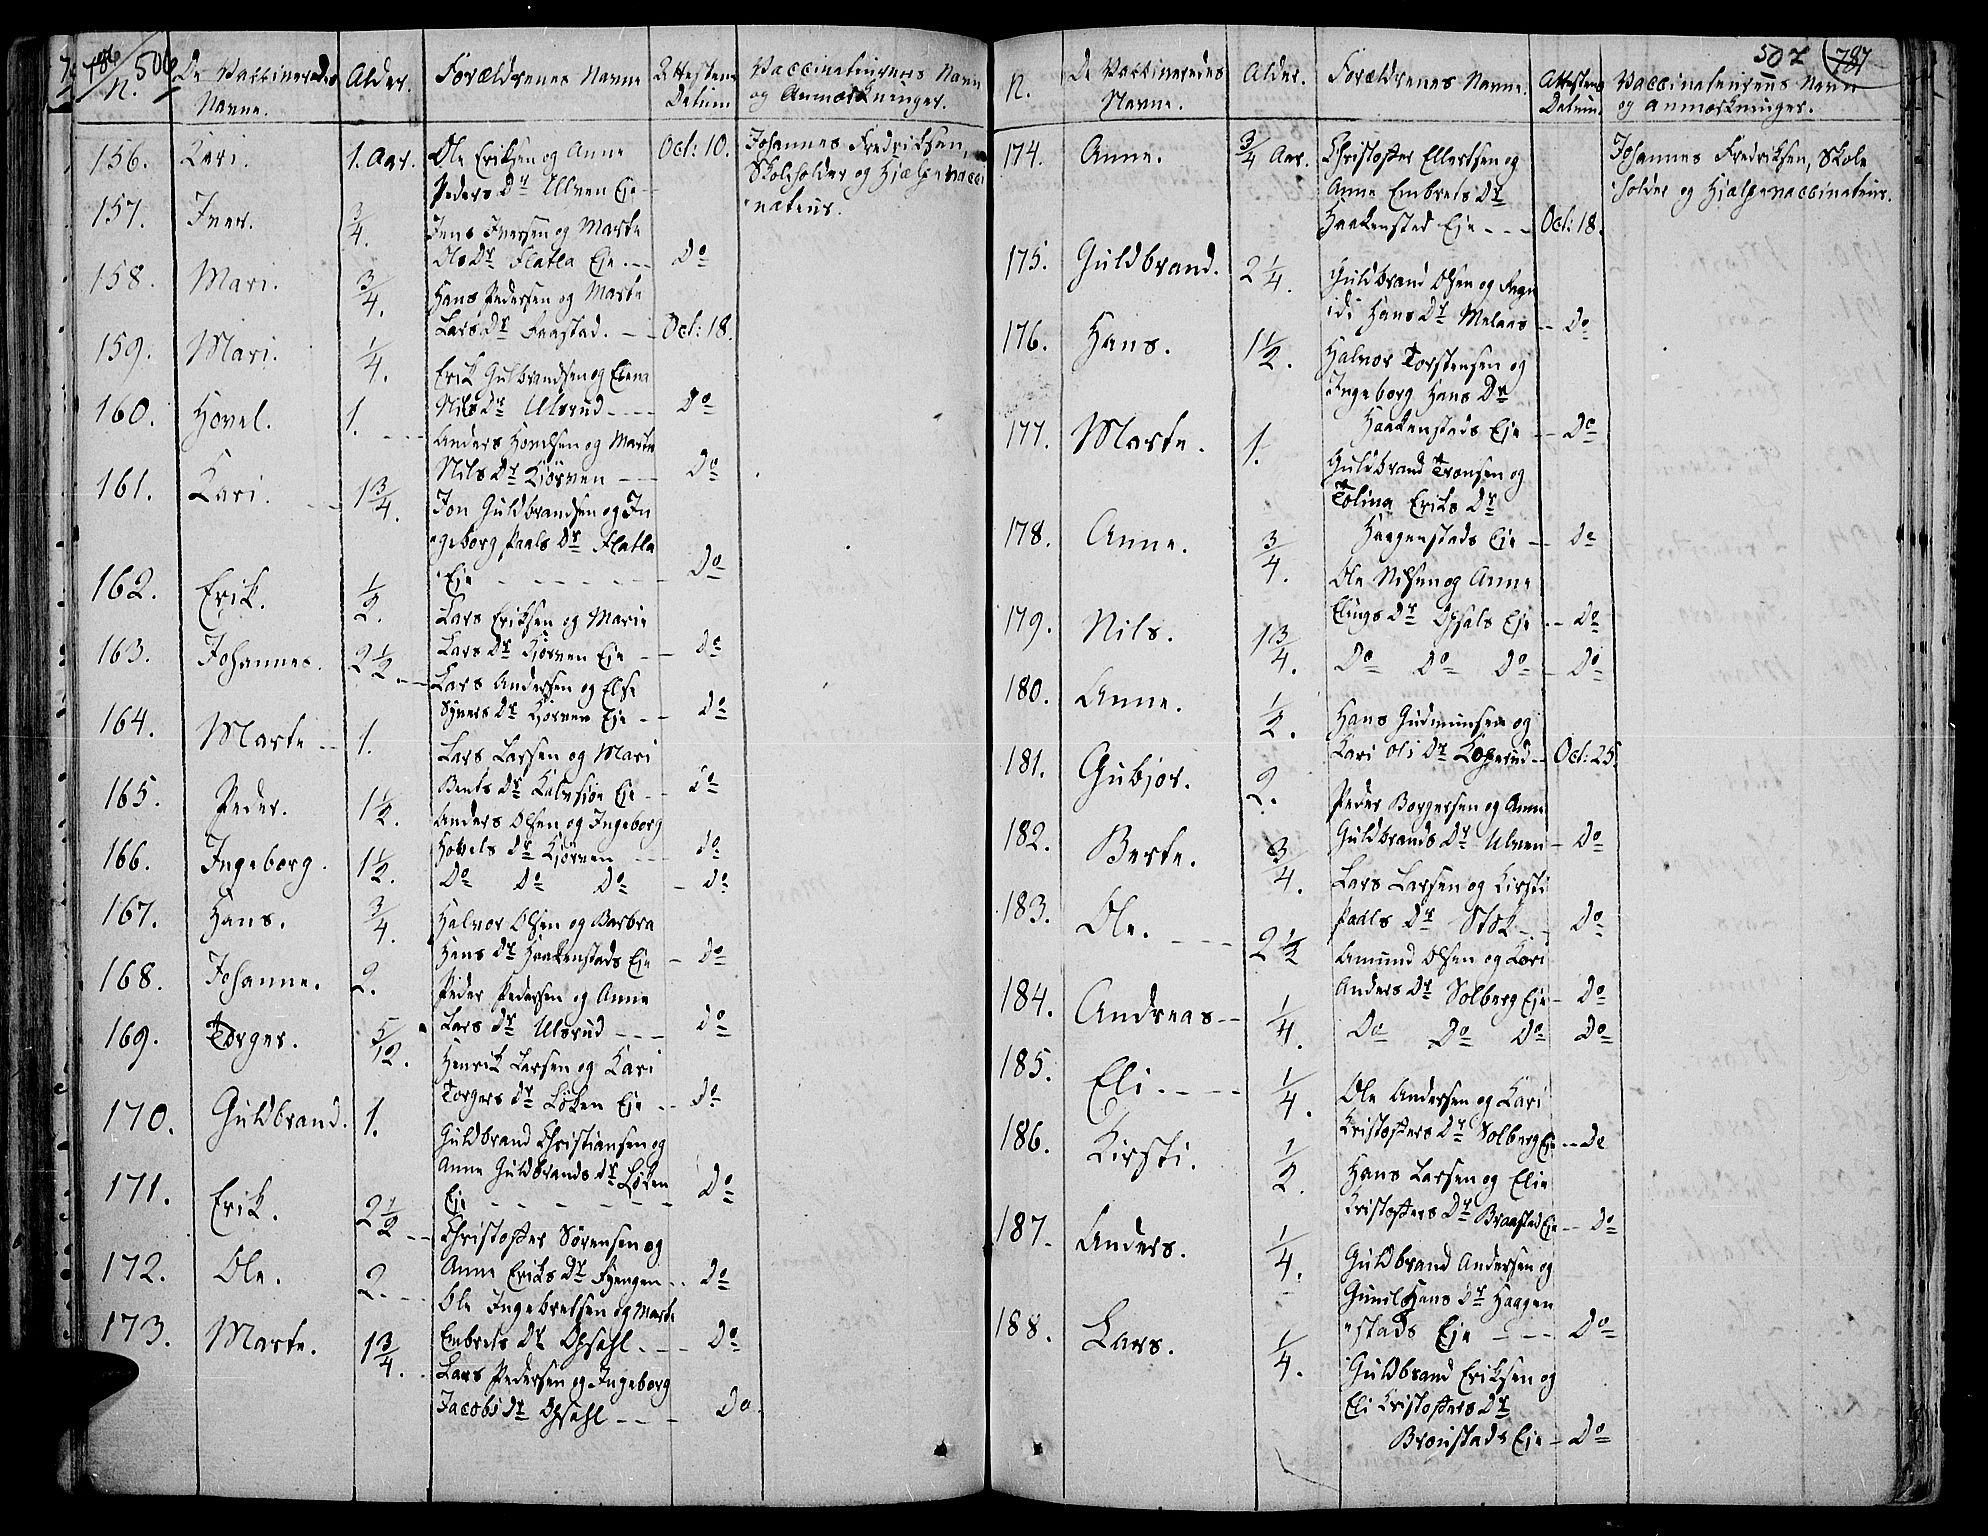 786 506
N. De Vaccineredes Navne. Alder. Forældrenes Navne Attestens Datum Vaccinateurens Navn og Anmærkninger.
156. Kari. 1. Aar. Ole Eriksen og Anne Oct: 10. Johannes Fredriksen,
Peders Dr Ulven Eje Skoleholder og Hjælpevacci
157. Iver. 3/4. Jens Iversen og Marte nateur.
Ols Dr Flatla Eje. Do
158. Mari. 3/4. Hans Pedersen og Marte
Lars Dr Faastad. Oct: 18.
159. Mari. 1/4. Erik Gulbrandsen og Elena
Nils Dr Ulsrud Do
160. Hovel. 1. Anders Hovelsen og Marte
Nils Dr Kjörven Do
161. Kari. 1 3/4. Jon Guldbrandsen og In
geborg Paals Dr Flatla
Eje Do
162. Erik. 1/2. Lars Eriksen og Marie
Lars Dr Kjörven Eje Do
163. Johannes. 2 1/2. Lars Andersen og Else
Syvers Dr Kjörven Eje Do
164. Marte 1. Lars Larsen og Mari
Bents Dr Kalvsjøe Eje Do
165. Peder. 1 1/2. Anders Olsen og Ingeborg
Hovels Dr Kjörven Do
166. Ingeborg. 1 1/2. Do Do Do Do
167. Hans. 3/4. Halvor Olsen og Barbra
Hans Dr Haakenstads Eje Do
168. Johanne. 2. Peder Pedersen og Anne
Lars Dr Ulsrud Do
169. Torger. 5/12. Henrik Larsen og Kari
Torgers Dr Løken Eje Do
170. Guldbrand. 1. Guldbrand Christiansen og
Anne Guldbrands Dr Løken
Eje Do
171. Erik. 2 1/2 Christoffer Sørensen og
Anne Eriks Dr Do
172. Ole. 2. Ole Ingebretsen og Marte
Embrets Dr Opsahl. Do
173. Marte. 1 3/4. Lars Pedersen og Ingeborg
Jacobs Dr Opsahl Do.
507 787
N. De Vaccineredes Navne. Alder. Forældrenes Navne. Attestens Datum. Vaccinateurens Navn og Anmærkninger.
174. Anne. 3/4 Aar. Christoffer Ellertsen og Johannes Fredriksen, Skole
Anne Embrets Dr holder og Hjælpevaccinateur.
Haakenstad Eje Oct: 18.
175. Guldbrand. 2 1/4. Guldbrand Olsen og Ragn
idi Hans Dr Melaas Do
176. Hans. 1 1/2. Halvor Torstensen og
Ingeborg Hans Dr
Haakenstads Eje Do
177. Marte. 1. Guldbrand Tronsen og
Tolina Eriks Dr
Haagenstads Eje Do
178. Anne. 3/4. Ole Nilsen og Anne
Elings Dr Opsals Eje Do
179. Nils. 1 3/4. Do Do Do Do
180. Anne. 1/2. Hans Gudmunsen og
Kari Oli Dr Kopperud Oct: 25.
181. Gubjor. 2. Peder Borgersen og Anne
Guldbrands Dr Ulven Do
182. Berte. 3/4. Lars Larsen og Kirsti
Paals Dr Stok Do
183. Ole. 2 1/2 Amund Olsen og Kari
Anders Dr Solberg Eje Do
184. Andreas 1/4. Do Do Do Do
185. Eli 1/4. Ole Andersen og Kari
Kristoffers Dr Solberg Eje Do
186. Kirsti. 1/2. Hans Larsen og Elie
Kristoffers Dr Braastad Eje Do
187. Anders. 1/4. Guldbrand Andersen og
Gunil Hans Dr Haagen
stads Eje Do
188. Lars. 1/4. Guldbrand Eriksen og
Eli Kristoffers Dr
Braastads Eje Do